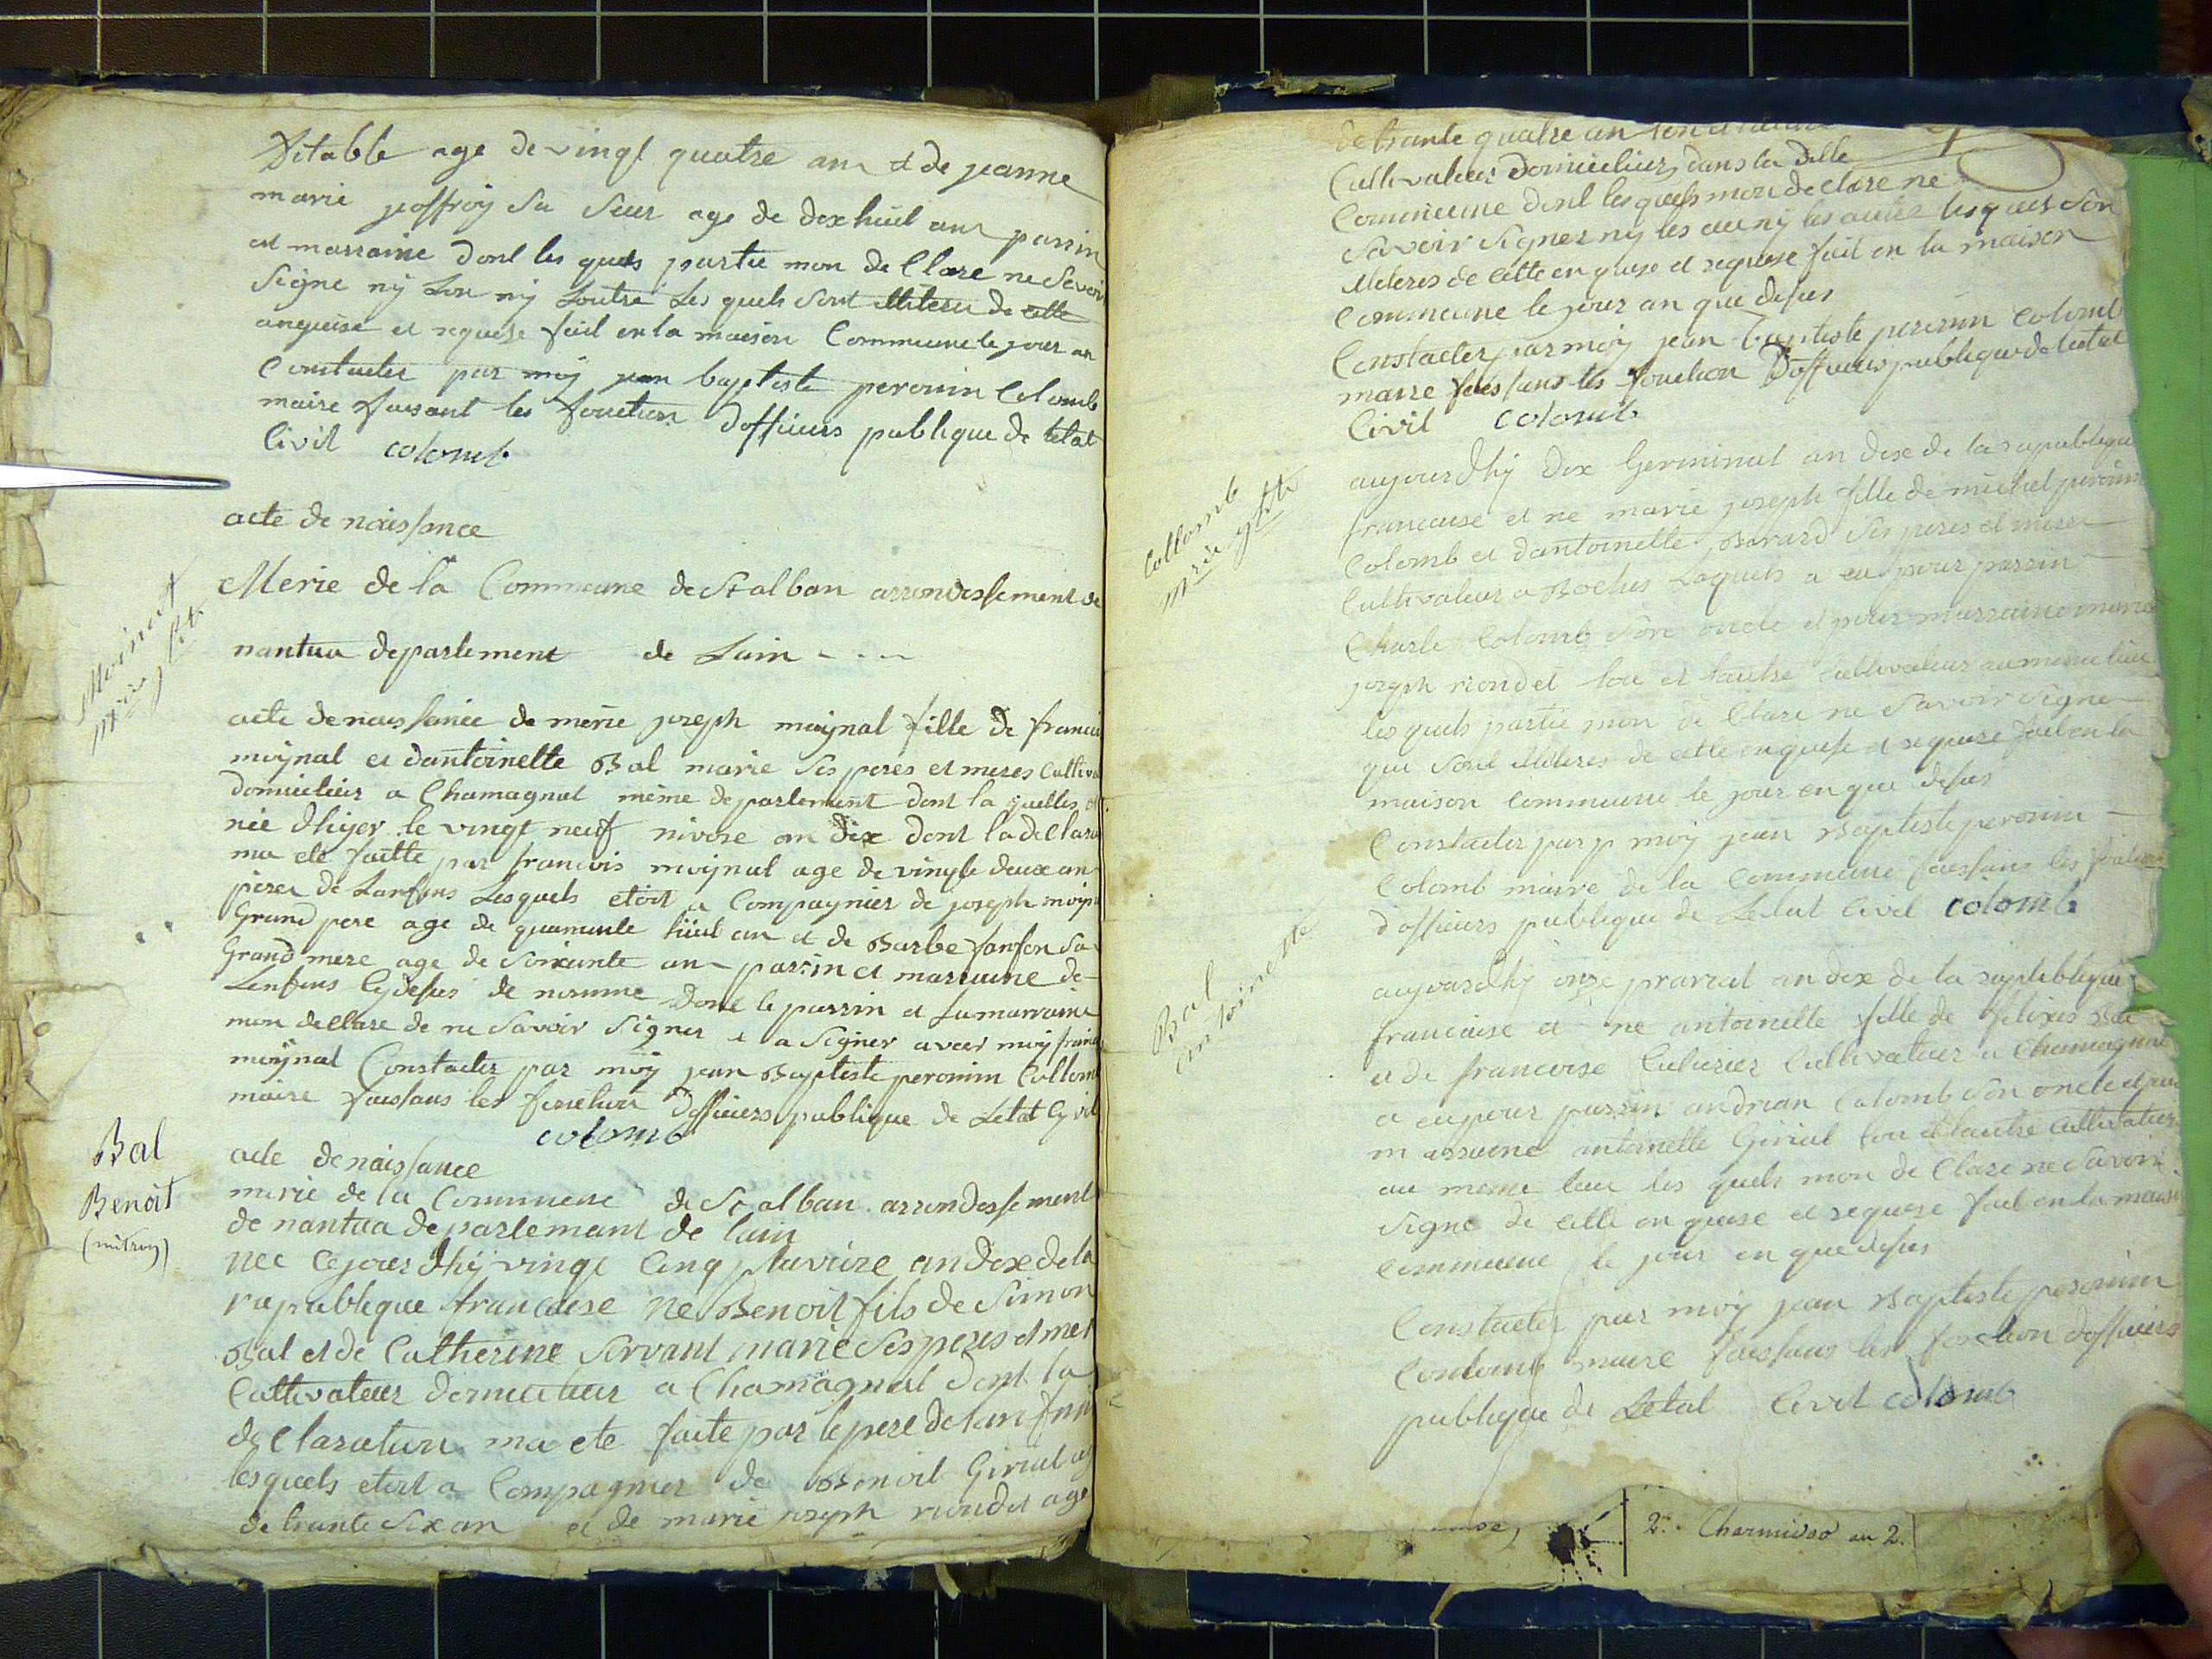 Ditable age de vingt quatre an et de jeanne
marie joffroy sa seur age de dix huit an parrin
et marraine dont les quels partie mon de Clare ne Savoir
Signe ny Lon ny Loutre Les quels Sont illiteres de cette
anquise et requise fait en la maison Commune le jour an
Constater par moy jean baptiste peronin Colomb
maire faisant les fonction dofficiers publique de letat
Civil colomb
acte de naissance
Merie de la Commune de St alban arrondissement de
nantua departement de Lain - - -
Moinat
mrie jph
acte de naissance de merie joseph moynal fille de francois
moynal et dantoinette Bal marie ses peres et meres Cultiva
domicilier a Chamagnat même departement dont la quelles et
née dhyer le vingt neuf nivose an dix dont la de Clara
ma ete faitte par francois moynal age de vingte deux an
perer de Lanfans Lesquels etoit a Compagnier de joseph moyn
Grand pere age de quarante huit an et de Barbe fanfon sa
Grand mere age de Soixante an parrin et marraine de
Lenfans Cy desus de nomme Dont le parrin et La marraine
mon declare de ne Savoir Signer et a Signer avecr moy franc
moynal Constater par moy jean Baptiste peronin Collomb
maire faisans les fonction dofficiers publique de Letat Civil
colomb
Bal
Benoit
(mitroy)
acte de naissance
merie de la Commune de St alban arrondessement
de nantua departemant de lain
nee Cejourdhy vingt Cinq pluviose an dix de la
republique francaise ne Benoit fils de Simon
Bal et de Catherine Servant marie Ses peres et mer
Cultivateur domicilier a Chamagnal dont la
de Claration ma ete faite par le pere de lanfan
lesquels etoit a Compagnier de Benoit Girial ag
de trante Six an et de marie joseph riondet age
de trante quatre an
Cultivateur Domicilier dans la ditte
Commune dont les quels mon de clare ne
Savoir Signer ny les un ny les autre lesquels Son
illiteres de cette en quise et requise fait en la maison
Commune le jour an que desus
Constater par moy jean baptiste peronin Colomb
maire faissans les fonction Dofficiers publique de letat
Civil colomb
Collomb
mrie jhte
aujourdhy dix Germinal an dix de la republique
francaise et ne marie joseph fille de michel peronin
Colomb et dantoinette Berard Ses peres et merer
Cultivateur a Boches Laquels a eu pour parrin
Charle Colomb Son oncle et pour marraine marie
joseph riondet lou et lautre cultivateur au meme lieu
les quels partie mon de Clare ne Savoir Signe
qui Sont illiteres de cette enquise et requise fait en la
maison Commune le jour en que desus
Constater par p moy jean Baptiste peronin
Colomb maire de la Commune faissans les fontion
d officiers publique de Letat Civil colomb
Bal
antoinette
aujourdhy onze prairial an dix de la republique
francaise et ne antoinette fille de felixis Bal
et de francoise Cultivateur a Chamagnal
a eu pour parrin andrian Colomb Son oncle et pour
marraine antoinette Girial lou et lautre Cultivateur
au meme lieu les quels mon de Clare ne Savoir
Signe de cette en quise et requise fait en la maison
Commune le jour en que desus
Constater par moy jean Baptiste peronin
Conlomb maire faissans les fonction dofficiers
publique de Letat Civil colomb
2. Charmidor an 2.